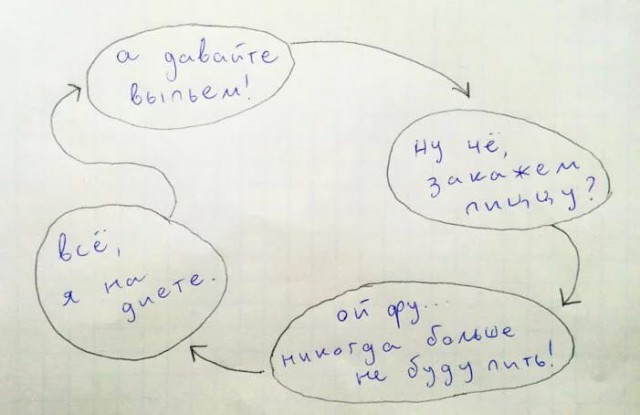 а давайте
выпьем!
ну чё,
закажем
пиццу?
ой фу...
никогда больше
не буду пить!
всё,
я на
диете.